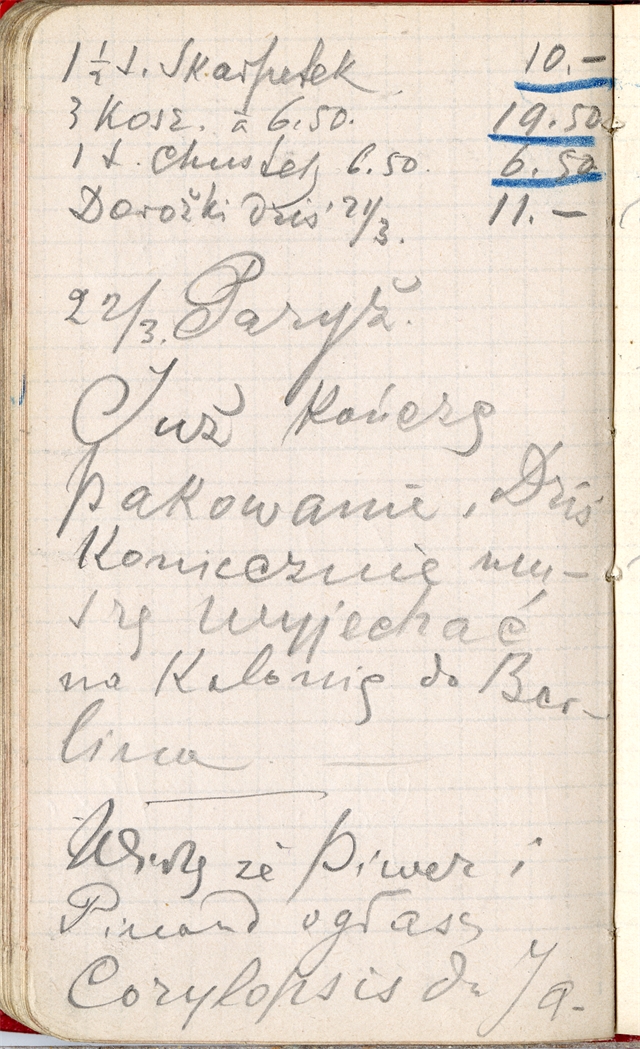 1 1/2 t. Skarpetek 10.–
3 Kosz. à 6.50. 19.50
1 t. chustek 6.50. 6.50
Dorożki dziś 21/3. 11.–
22/3. Paryż.
Już kończę
pakowanie. Dziś
koniecznie mu-
szę wyjechać
na Kolonię do Ber-
lina
że Piwer i
Pinaud ogłasz
Corylopsis du Ja-